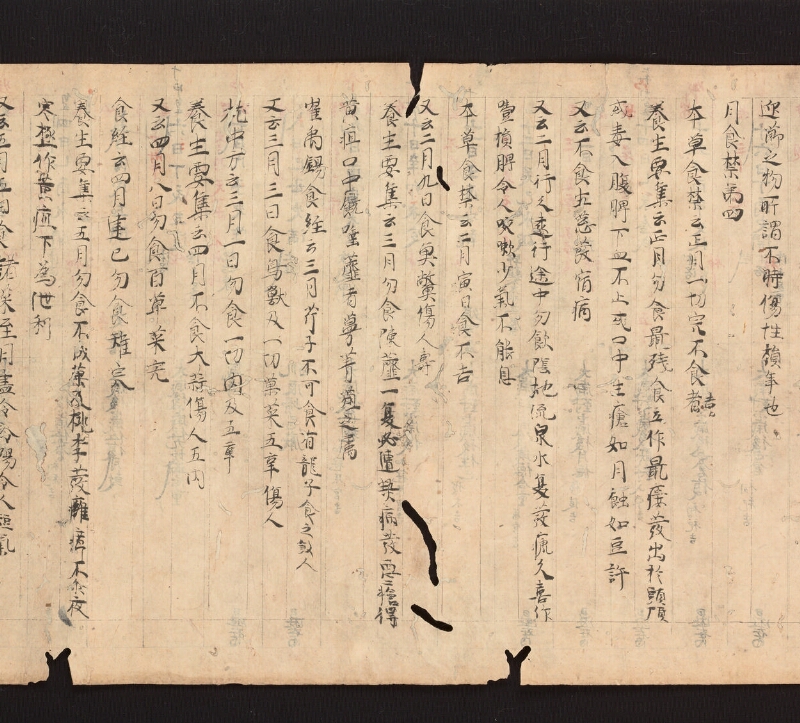 迎節之物所謂不時傷性損年也
月食禁第四
本草食禁云正月一切完不食者吉
養生要集云正月勿食最殘食立作最瘻發出於頸項
或毒入腹脾下血不止或口中生瘡如月蝕如豆許
又云不食五恙發宿病
又云二月行久遠行途中勿飲陰地流泉水夏發瘧久喜作
噎損脾令人咳嗽少氣不能息
本草食禁云二月寅日食不吉
又云二月九日食臭鱉傷人壽
養生要集云三月勿食陳韲一夏必遭熱病發惡瘡得
黃疸口中饒唾韲者蔓菁菹之屬
崔禹錫食經云三月芹子不可食有龍子食之煞人
又云三月三日食鳥獸及一切菓菜五辛傷人
枕中方云三月一日勿食一切肉及五辛
養生要集云四月不食大蒜傷人五內
又云四月八日勿食百草菜完
食經云四月建巳勿食雉完
養生要集云五月勿食不成菓及桃李發癰癤不尒夜
寒極作黃疸下為泄利
又云五月五日食諸菜至月盡令冷陽令人短氣